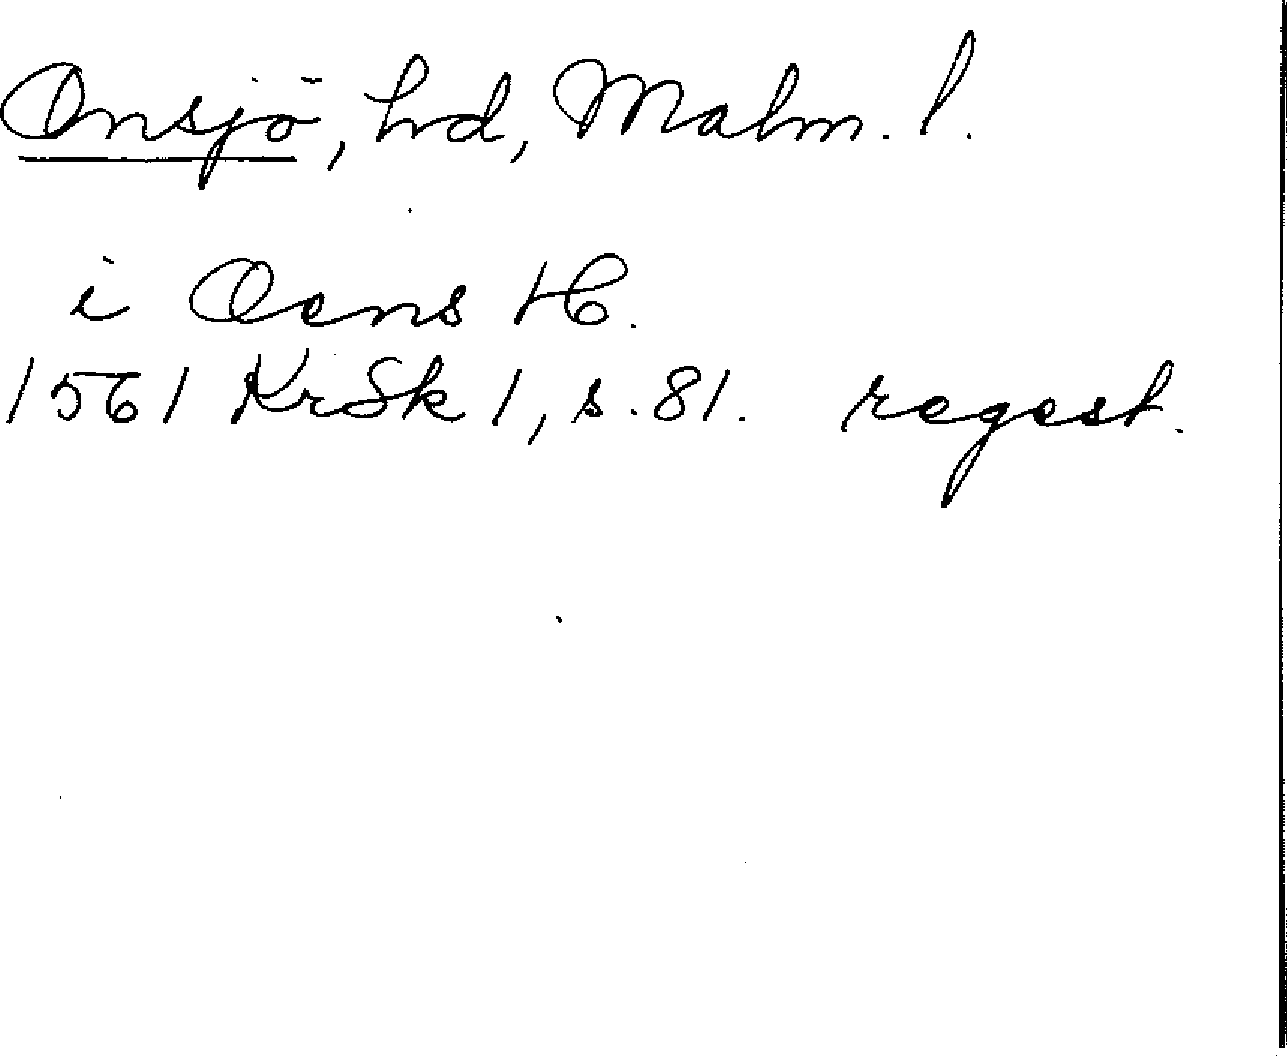 Onsjö, hd, Malm. l.
i Oens H.
1561 KrSk 1, s. 81. regest.